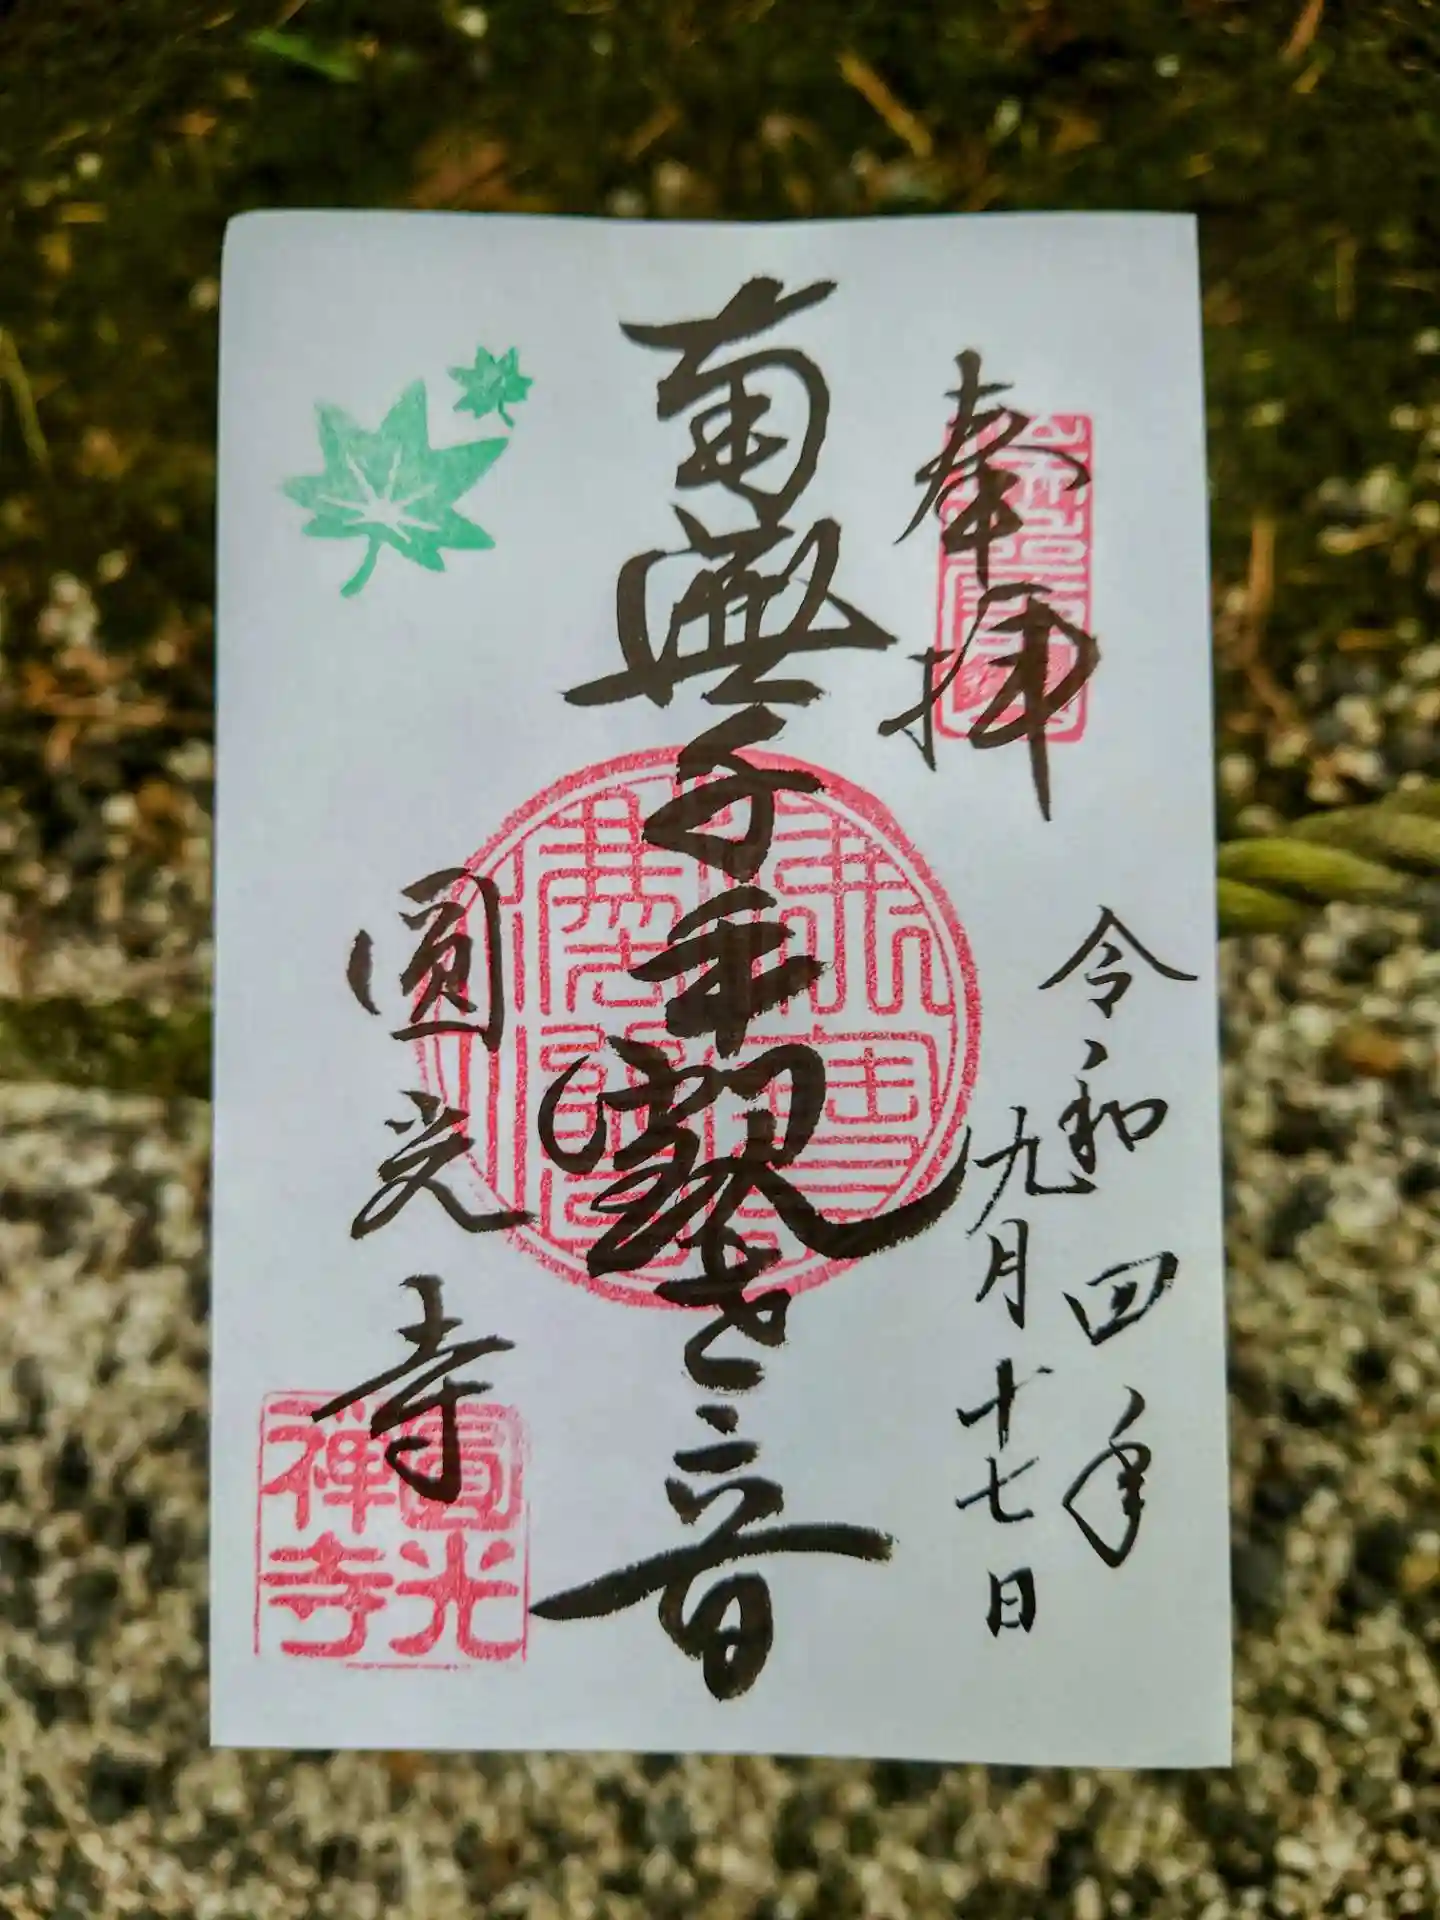 奉拝
令和四年
九月十七日
南無千手観世音
圓光寺
圓光
禅寺